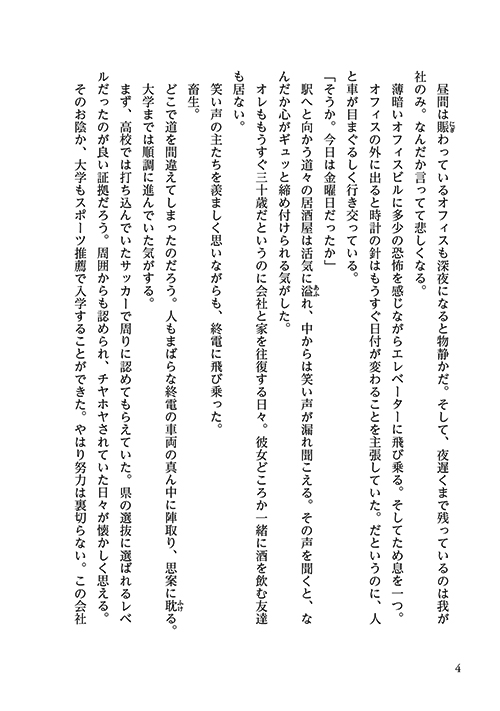 昼間は賑わっているオフィスも深夜になると物静かだ。そして、夜遅くまで残っているのは我が
社のみ。なんだか言ってて悲しくなる。
薄暗いオフィスビルに多少の恐怖を感じながらエレベーターに飛び乗る。そしてため息を一つ。
オフィスの外に出ると時計の針はもうすぐ日付が変わることを主張していた。だというのに、人
と車が目まぐるしく行き交っている。
「そうか。今日は金曜日だったか」
駅へと向かう道々の居酒屋は活気に溢れ、中からは笑い声が漏れ聞こえる。その声を聞くと、な
んだか心がギュッと締め付けられる気がした。
オレももうすぐ三十歳だというのに会社と家を往復する日々。彼女どころか一緒に酒を飲む友達
も居ない。
笑い声の主たちを羨ましく思いながらも、終電に飛び乗った。
畜生。
どこで道を間違えてしまったのだろう。人もまばらな終電の車両の真ん中に陣取り、思案に耽る。
大学までは順調に進んでいた気がする。
まず、高校では打ち込んでいたサッカーで周りに認めてもらえていた。県の選抜に選ばれるレベ
ルだったのが良い証拠だろう。周囲からも認められ、チヤホヤされていた日々が懐かしく思える。
そのお陰か、大学もスポーツ推薦で入学することができた。やはり努力は裏切らない。この会社
4